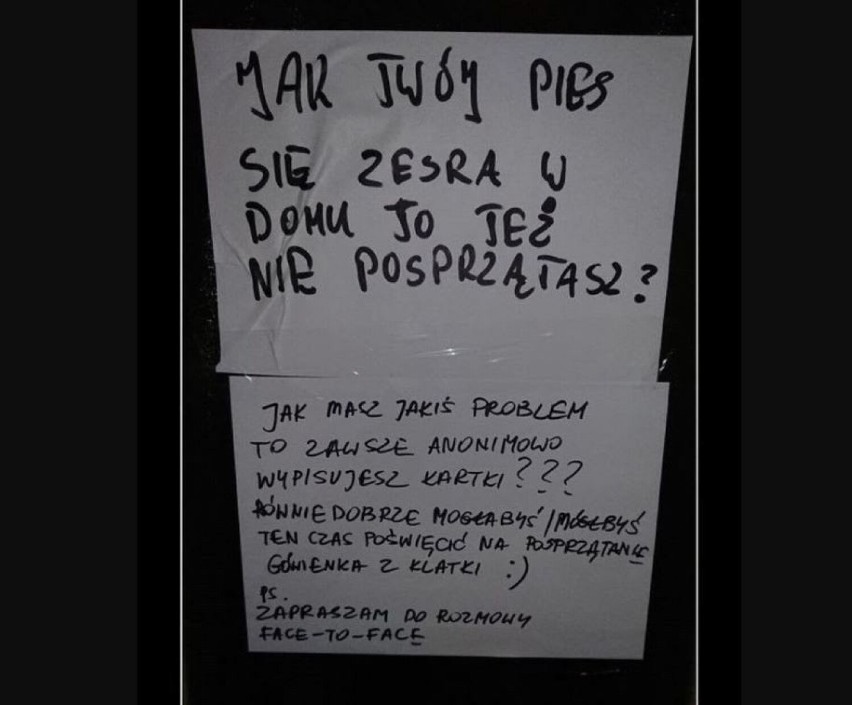 JAK TWÓJ PIES
SIĘ ZESRA W
DOMU TO TEŻ
NIE POSPRZĄTASZ?
JAK MASZ JAKIŚ PROBLEM
TO ZAWSZE ANONIMOWO
WYPISUJESZ KARTKI???
RÓWNIE DOBRZE MOGŁABYŚ/MÓGŁBYŚ
TEN CZAS POŚWIĘCIĆ NA POSPRZĄTANIE
GÓWIENKA Z KLATKI :)
PS.
ZAPRASZAM DO ROZMOWY
FACE-TO-FACE